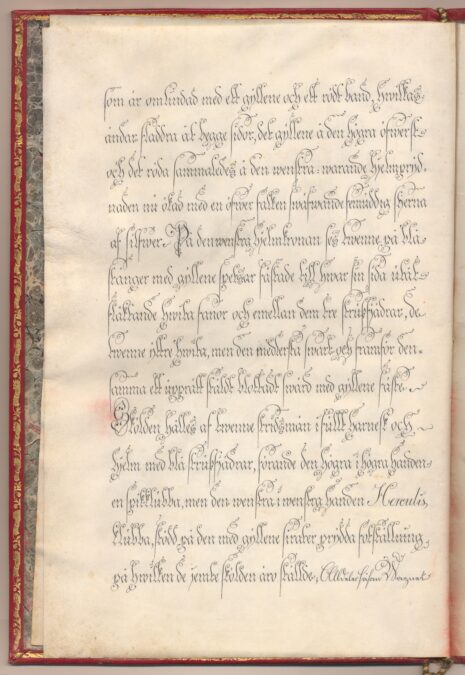 som är omlindad med ett gyllene och ett rödt band, hwilkas
ändar fladdra åt begge sidor, det gyllene å den högra ofwerst
och det röda sammaledes å den wenstra: warande hjelmpryd,
naden nu ökad med en öfwer falken swäfwande femuddig stjerna
af silfwer. På den wenstra hjelmkronan ses twenne på blå
stänger med gyllene spetsar fästade till hwar sin sida utåt
fläktande hwita fanor och emellan dem tre strutsfjädrar, de
twenne yttre hwita, men den medlersta swart och framför den,
samma ett upprätt stäldt blottadt swärd med gyllene fäste.
Skölden hålles af twenne stridsmän i fullt harnesk och
hjelm med blå strutsfjädrar, förande den högra i högra handen
en spikklubba, men den wenstra i wenstra handen Herculis
klubba, stödd på den med gyllene sirater prydda fotställning
på hwilken de jemte skölden äro ställde,